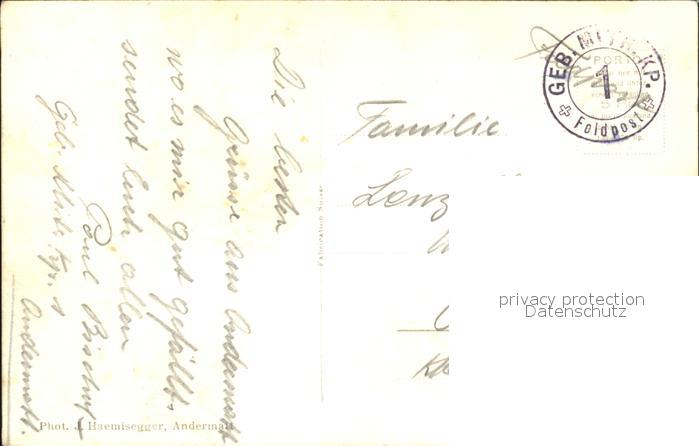 Die besten
Grüsse aus Andermatt
wo es mir gut gefällt,
sendet Euch allen
Paul Bischof
Geb. Mitr. Kp. 1
Andermatt.
Phot. J. Haemisegger, Andermatt
Fabrication Suisse
Feldpost
GEB. MITR. KP.
1
Feldpost
PORT
5
Familie
Lenz
privacy protection
Datenschutz